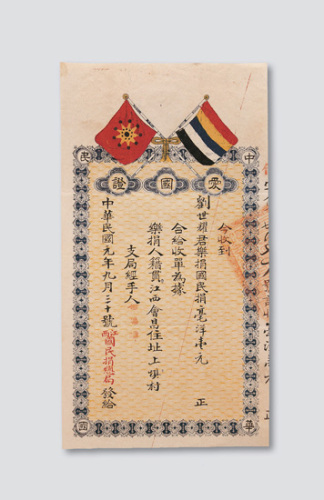 中華民國
愛國證
今收到
劉世耀君樂捐國民捐毫洋壹元 正
合給收單為據
樂捐人籍貫江西會昌住址上埧村
支局經手人
中華民國元年九月三十號 國民捐總局 發給